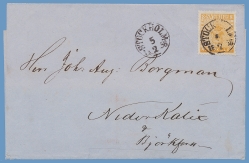 STOCKHOLM
5
2
Herr Joh: Aug: Borgman
Neder Kalix
&
Björkfors